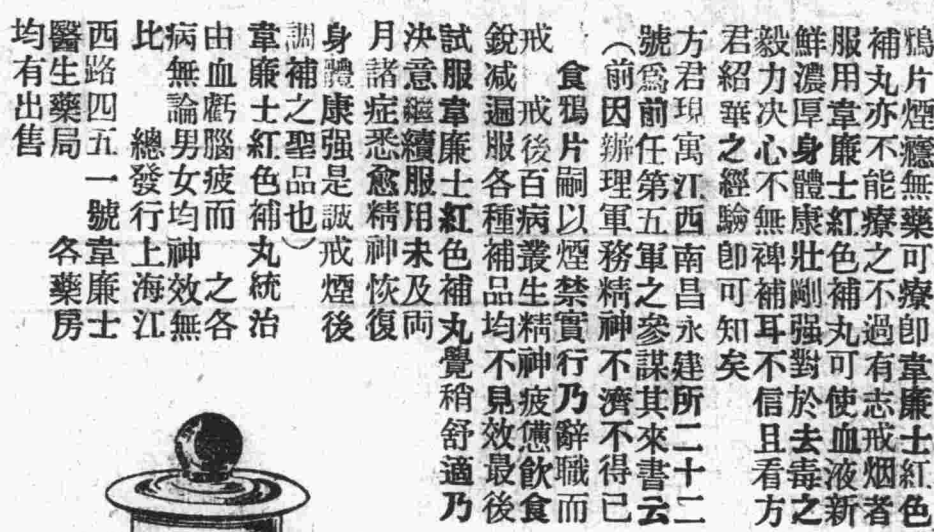 鴉片煙癮無藥可療卽韋廉士紅色
補丸亦不能療之不過有志戒烟者
服用韋廉士紅色補丸可使血液新
鮮濃厚身體康壯剛强對於去毒之
毅力决心不無裨補耳不信且看方
君紹華之經驗卽可知矣
方君現寓江西南昌永建所二十二
號爲前任第五軍之參謀其來書云
（前因辦理軍務精神不濟不得已
食鴉片嗣以煙禁實行乃辭職而
戒　戒後百病叢生精神疲憊飮食
銳减遍服各種補品均不見效最後
試服韋廉士紅色補丸覺稍舒適乃
决意繼續服用未及両
月諸症悉愈精神恢復
身體康强是誠戒煙後
調補之聖品也）
韋廉士紅色補丸統治
由血虧腦疲而　之各
病無論男女均神效無
比　總發行上海江
西路四五一號韋廉士
醫生藥局　各藥房
均有出售